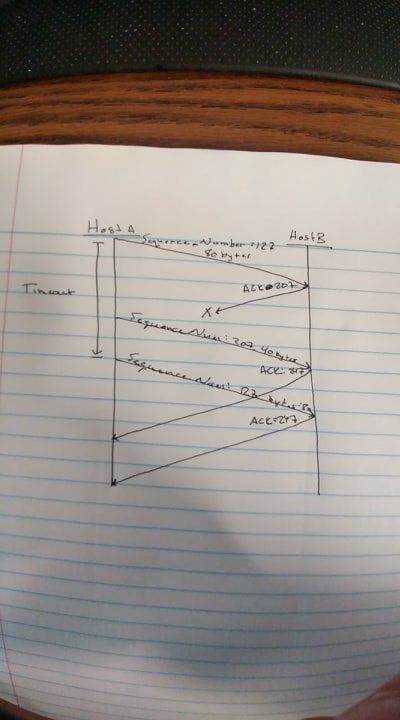 Host A
Host B
Sequence Number = 127
80 bytes
ACK=207
Timeout
X
Sequence Num: 207 40 bytes
ACK: 247
Sequence Num: 127 bytes: 80
ACK=247